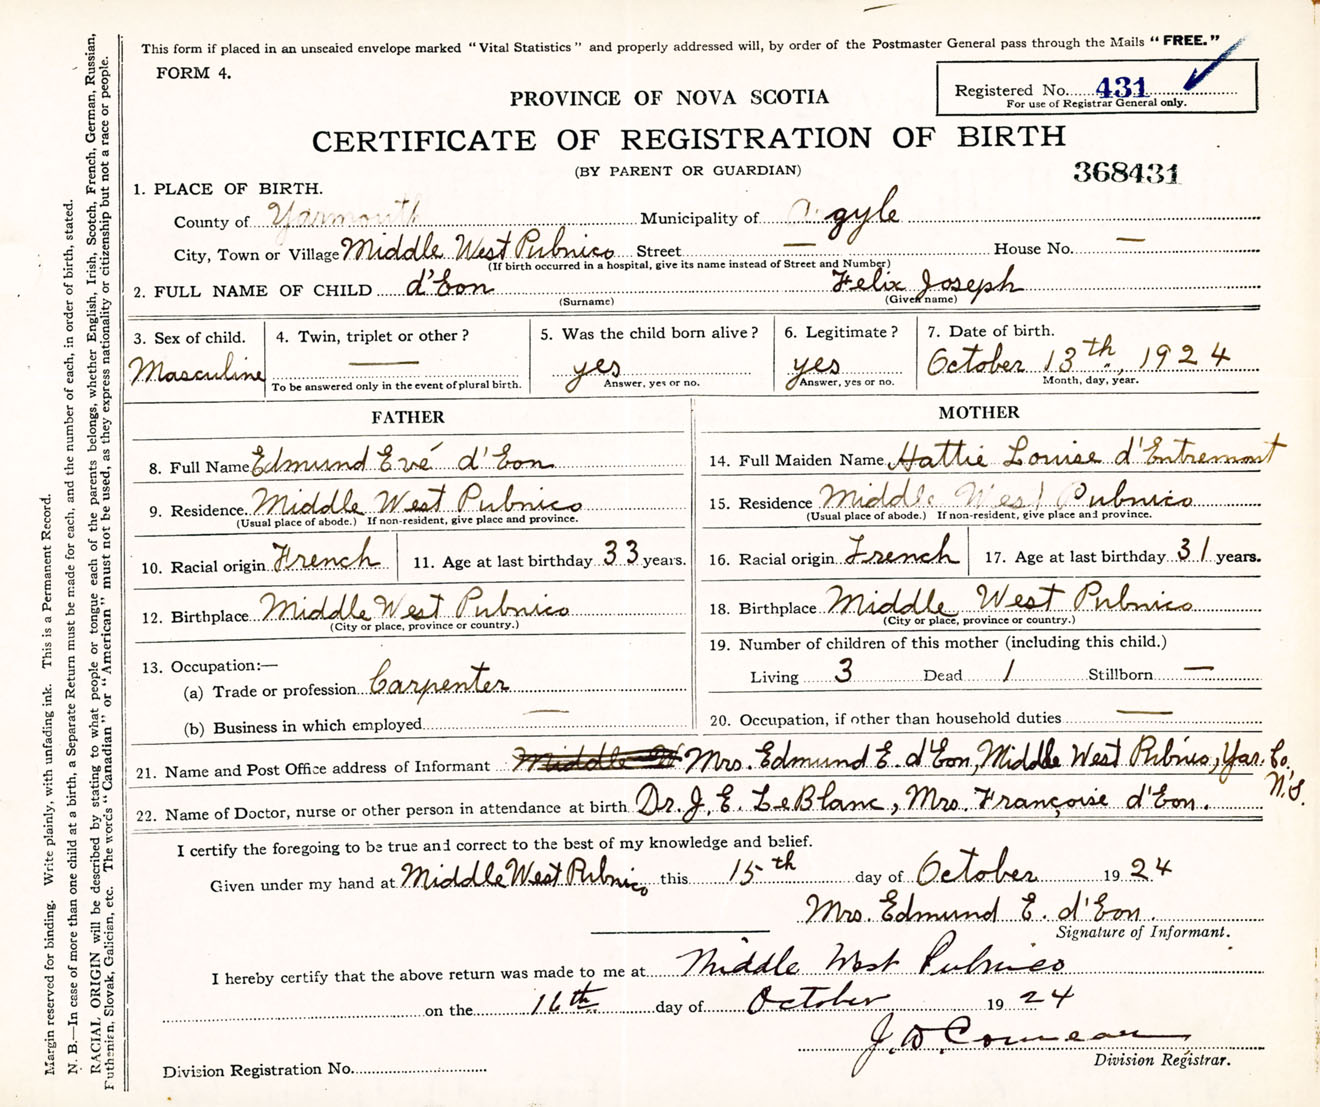 This form if placed in an unsealed envelope marked "Vital Statistics" and properly addressed will, by order of the Postmaster General pass through the Mails "FREE."
FORM 4.
Registered No. 431
For use of Registrar General only.
PROVINCE OF NOVA SCOTIA
CERTIFICATE OF REGISTRATION OF BIRTH
(BY PARENT OR GUARDIAN)
368431
1. PLACE OF BIRTH.
County of Yarmouth Municipality of Argyle
City, Town or Village Middle West Pubnico Street — House No. —
(If birth occurred in a hospital, give its name instead of Street and Number)
2. FULL NAME OF CHILD d'Eon Felix Joseph
(Surname) (Given name)
3. Sex of child. 4. Twin, triplet or other? 5. Was the child born alive? 6. Legitimate? 7. Date of birth.
Masculine — yes yes October 13th, 1924
To be answered only in the event of plural birth. Answer, yes or no. Answer, yes or no. Month, day, year.
FATHER MOTHER
8. Full Name Edmund Evé d'Eon 14. Full Maiden Name Hattie Louise d'Entremont
9. Residence. Middle West Pubnico 15. Residence Middle West Pubnico
(Usual place of abode.) If non-resident, give place and province. (Usual place of abode.) If non-resident, give place and province.
10. Racial origin French 11. Age at last birthday 33 years. 16. Racial origin French 17. Age at last birthday 31 years.
12. Birthplace Middle West Pubnico 18. Birthplace Middle West Pubnico
(City or place, province or country.) (City or place, province or country.)
19. Number of children of this mother (including this child.)
13. Occupation:—
Living 3 Dead 1 Stillborn —
(a) Trade or profession Carpenter
(b) Business in which employed — 20. Occupation, if other than household duties —
21. Name and Post Office address of Informant Middle W Mrs. Edmund E. d'Eon, Middle West Pubnico, Yar. Co. N.S.
22. Name of Doctor, nurse or other person in attendance at birth Dr. J. E. LeBlanc, Mrs. Françoise d'Eon.
I certify the foregoing to be true and correct to the best of my knowledge and belief.
Given under my hand at Middle West Pubnico this 15th day of October 1924
Mrs. Edmund E. d'Eon.
Signature of Informant.
I hereby certify that the above return was made to me at Middle West Pubnico
on the 16th day of October 1924
J. W. Comeau
Division Registrar.
Division Registration No.
Margin reserved for binding. Write plainly, with unfading ink. This is a Permanent Record.
N. B.—In case of more than one child at a birth, a Separate Return must be made for each, and the number of each, in order of birth, stated.
RACIAL ORIGIN will be described by stating to what people or tongue each of the parents belongs, whether English, Irish, Scotch, French, German, Russian,
Ruthenian, Slovak, Galician, etc. The words "Canadian" or "American" must not be used, as they express nationality or citizenship but not a race or people.